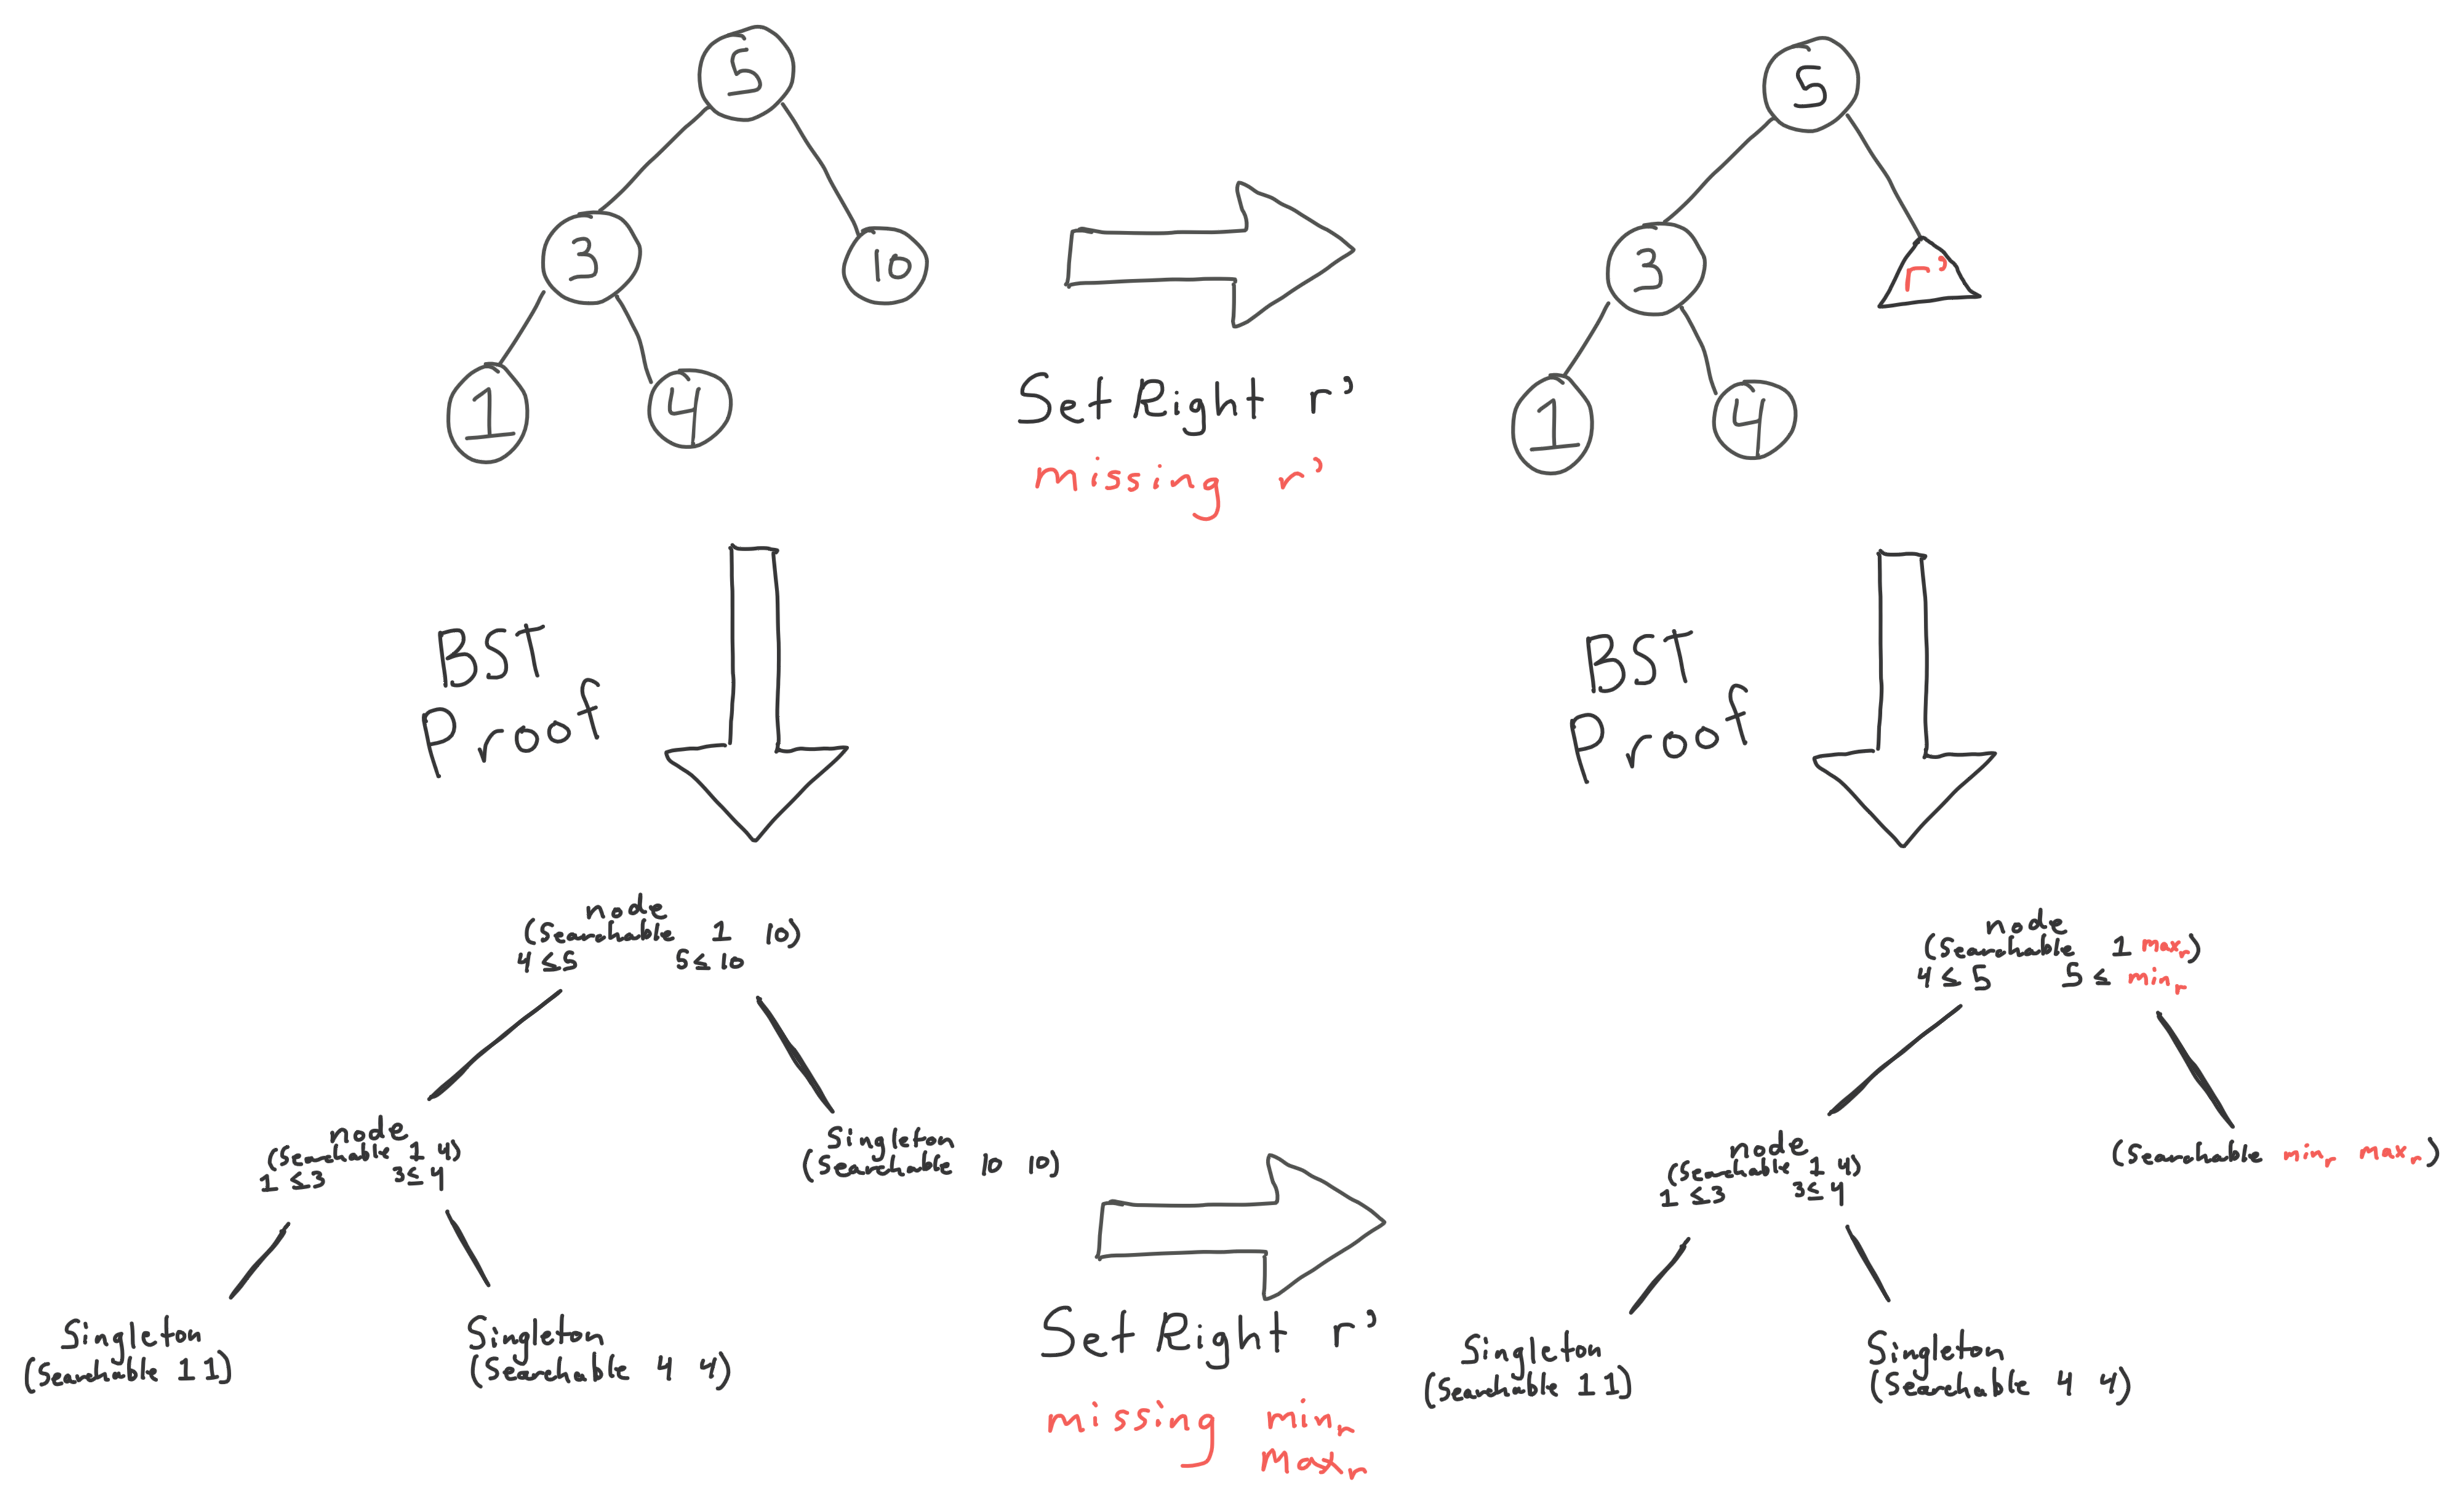 5
3
10
1
4
Set Right r'
missing r'
5
3
r'
1
4
BST
Proof
BST
Proof
node
(Searchable 1 10)
4 ≤ 5 5 ≤ 10
node
(Searchable 1 4)
1 ≤ 3 3 ≤ 4
Singleton
(Searchable 10 10)
Singleton
(Searchable 1 1)
Singleton
(Searchable 4 4)
Set Right r'
missing minᵣ
maxᵣ
node
(Searchable 1 maxᵣ)
4 ≤ 5 5 ≤ minᵣ
node
(Searchable 1 4)
1 ≤ 3 3 ≤ 4
(Searchable minᵣ maxᵣ)
Singleton
(Searchable 1 1)
Singleton
(Searchable 4 4)